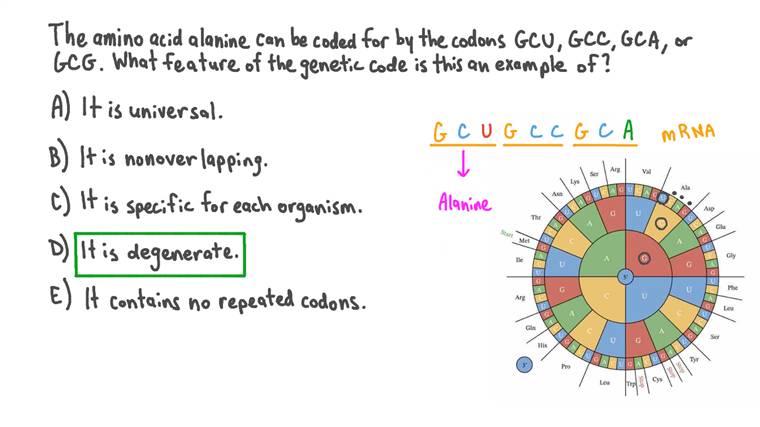 The amino acid alanine can be coded for by the codons GCU, GCC, GCA, or
GCG. What feature of the genetic code is this an example of?
A) It is universal.
B) It is nonoverlapping.
C) It is specific for each organism.
D) It is degenerate.
E) It contains no repeated codons.
G C U G C C G C A mRNA
Alanine
Val
Ala
Asp
Glu
Gly
Phe
Leu
Ser
Tyr
Stop
Stop
Cys
Stop
Trp
Leu
Pro
His
Gln
Arg
Ile
Met
Start
Thr
Asn
Lys
Ser
Arg
G
U
C
A
U
C
A
G
U
C
A
G
U
C
A
G
U
C
A
G
5'
5'